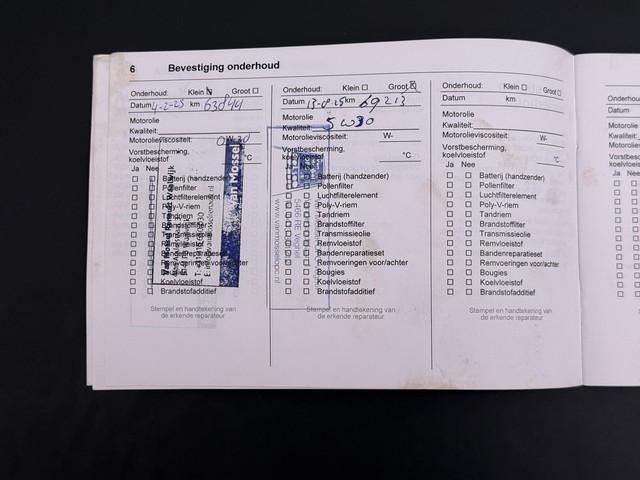 6 Bevestiging onderhoud
Onderhoud: Klein Groot
Datum 4-2-25 km 63844
Motorolie
Kwaliteit:
Motorolieviscositeit: 0W30
Vorstbescherming,
koelvloeistof °C
Ja Nee
Batterij (handzender)
Pollenfilter
Luchtfilterelement
Poly-V-riem
Tandriem
Brandstoffilter
Transmissieolie
Remvloeistof
Bandenreparatieset
Remvoeringen voor/achter
Koelvloeistof
Brandstofadditief
van Mossel
Stempel en handtekening van
de erkende reparateur.
Onderhoud: Klein Groot
Datum 13-8-25 km 69213
Motorolie
Kwaliteit: 5W30
Motorolieviscositeit: W-
Vorstbescherming,
koelvloeistof °C
Ja Nee
Batterij (handzender)
Pollenfilter
Luchtfilterelement
Poly-V-riem
Tandriem
Brandstoffilter
Transmissieolie
Remvloeistof
Bandenreparatieset
Remvoeringen voor/achter
Bougies
Koelvloeistof
Brandstofadditief
5406 RE Veghel
Stempel en handtekening van
de erkende reparateur.
Onderhoud: Klein Groot
Datum km
Motorolie
Kwaliteit:
Motorolieviscositeit: W-
Vorstbescherming,
koelvloeistof °C
Ja Nee
Batterij (handzender)
Pollenfilter
Luchtfilterelement
Poly-V-riem
Tandriem
Brandstoffilter
Transmissieolie
Remvloeistof
Bandenreparatieset
Remvoeringen voor/achter
Bougies
Koelvloeistof
Brandstofadditief
Stempel en handtekening van
de erkende reparateur.